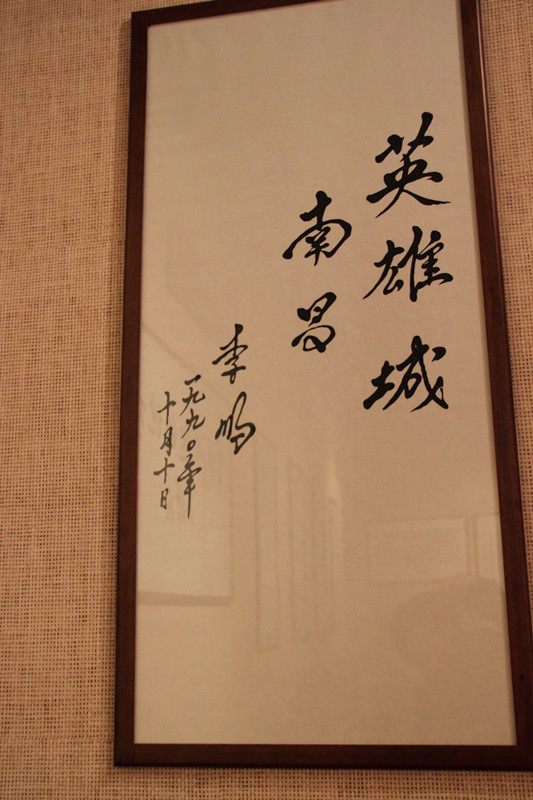 英雄城
南昌
李鹏
一九九〇年
十月十日